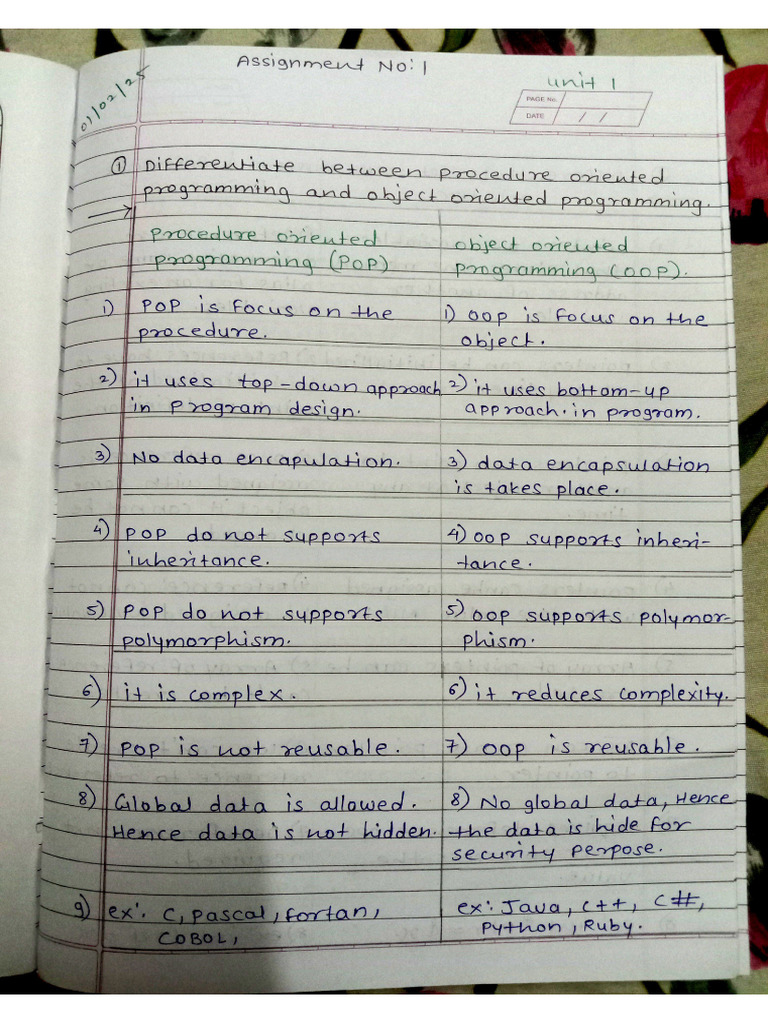 Assignment No: 1
01/02/25
unit 1
PAGE No.
DATE / /
① Differentiate between procedure oriented
programming and object oriented programming.
→
Procedure oriented
programming (POP)
object oriented
programming (OOP).
1) POP is focus on the
procedure.
1) OOP is focus on the
object.
2) it uses top-down approach
in program design.
2) it uses bottom-up
approach. in program.
3) No data encapulation.
3) data encapsulation
is takes place.
4) POP do not supports
inheritance.
4) OOP supports inheri-
tance.
5) POP do not supports
polymorphism.
5) OOP supports polymor-
phism.
6) it is complex.
6) it reduces complexity.
7) POP is not reusable.
7) OOP is reusable.
8) Global data is allowed.
Hence data is not hidden.
8) No global data, Hence
the data is hide for
security perpose.
9) ex: C, pascal, fortan,
COBOL,
ex: Java, C++, C#,
Python, Ruby.